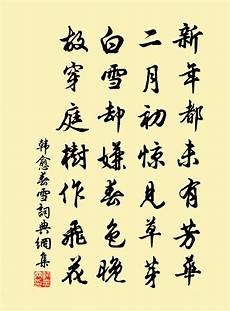 新年都未有芳華
二月初惊見草芽
白雪却嫌春色晚
故穿庭樹作飛花
韩愈春雪詞典網集